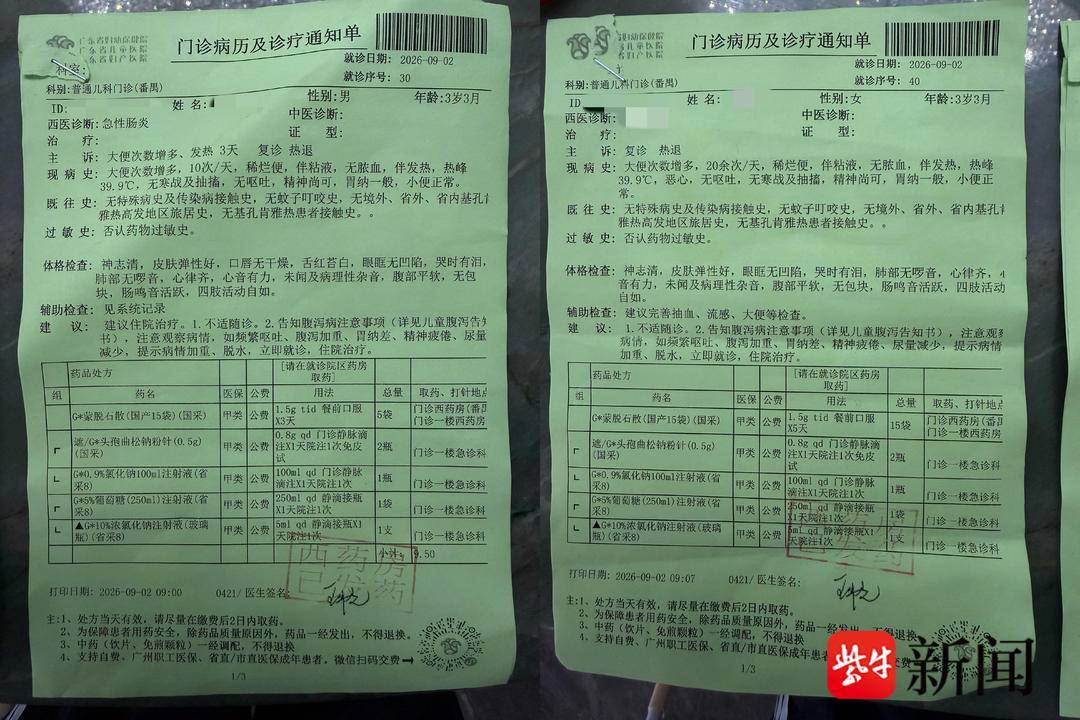 广东省妇幼保健院
广东省儿童医院
广东省妇产医院
门诊病历及诊疗通知单
就诊日期: 2026-09-02
就诊序号: 30
科室:
科别:普通儿科门诊(番禺)
ID:
姓名:
性别:男
年龄:3岁3月
西医诊断: 急性肠炎
中医诊断:
治 疗:
证 型:
主 诉: 大便次数增多、发热 3天 复诊 热退
现 病 史: 大便次数增多,10次/天,稀烂便,伴粘液,无脓血,伴发热,热峰
39.9℃,无寒战及抽搐,无呕吐,精神尚可,胃纳一般,小便正常。
既 往 史: 无特殊病史及传染病接触史,无蚊子叮咬史,无境外、省外、省内基孔肯
雅热高发地区旅居史,无基孔肯雅热患者接触史。。
过 敏 史: 否认药物过敏史。
体格检查: 神志清,皮肤弹性好,口唇无干燥,舌红苔白,眼眶无凹陷,哭时有泪,
肺部无啰音,心律齐,心音有力,未闻及病理性杂音,腹部平软,无包
块,肠鸣音活跃,四肢活动自如。
辅助检查: 见系统记录
建 议: 建议住院治疗。1.不适随诊。2.告知腹泻病注意事项(详见儿童腹泻告知
书),注意观察病情,如频繁呕吐、腹泻加重、胃纳差、精神疲倦、尿量
减少,提示病情加重、脱水,立即就诊,住院治疗。
药品处方
[请在就诊院区药房
取药]
组 药名 医保 公费 用法 总量 取药、打针地点
G*蒙脱石散(国产15袋)(国采) 甲类 公费 1.5g tid 餐前口服
X3天 5袋 门诊西药房(番禺
门诊一楼西药房
遮/G*头孢曲松钠粉针(0.5g)
(国采) 甲类 公费 0.8g qd 门诊静脉滴
注X1天院注1次免皮
试 2瓶 门诊一楼急诊科
G*0.9%氯化钠100ml注射液(省
采8) 甲类 公费 100ml qd 门诊静脉
滴注X1天院注1次 1瓶 门诊一楼急诊科
G*5%葡萄糖(250ml)注射液(省
采8) 甲类 公费 250ml qd 静滴接瓶
X1天院注1次 1袋 门诊一楼急诊科
▲G*10%浓氯化钠注射液(玻璃
瓶)(省采8) 甲类 公费 5ml qd 静滴接瓶X1
天院注1次 1支 门诊一楼急诊科
小计: 9.50
西药房
已发药
打印日期: 2026-09-02 09:00 0421/ 医生签名:
主:1、处方当天有效,请尽量在缴费后2日内取药。
2、为保障患者用药安全,除药品质量原因外,药品一经发出,不得退换。
3、中药(饮片、免煎颗粒)一经调配,不得退换
4、支持自费、广州职工医保、省直/市直医保成年患者,微信扫码交费→
1/3
省妇幼保健院
省儿童医院
省妇产医院
门诊病历及诊疗通知单
就诊日期: 2026-09-02
就诊序号: 40
科别:普通儿科门诊(番禺)
ID
姓名:
性别:女
年龄:3岁3月
西医诊断:
中医诊断:
治 疗:
证 型:
主 诉: 复诊 热退
现 病 史: 大便次数增多,20余次/天,稀烂便,伴粘液,无脓血,伴发热,热峰
39.9℃,恶心,无呕吐,无寒战及抽搐,精神尚可,胃纳一般,小便正
常。
既 往 史: 无特殊病史及传染病接触史,无蚊子叮咬史,无境外、省外、省内基孔肯
雅热高发地区旅居史,无基孔肯雅热患者接触史。。
过 敏 史: 否认药物过敏史。
体格检查: 神志清,皮肤弹性好,眼眶无凹陷,哭时有泪,肺部无啰音,心律齐,心
音有力,未闻及病理性杂音,腹部平软,无包块,肠鸣音活跃,四肢活动
自如。
辅助检查: 建议完善抽血、流感、大便等检查。
建 议: 1.不适随诊。2.告知腹泻病注意事项(详见儿童腹泻告知书),注意观察
病情,如频繁呕吐、腹泻加重、胃纳差、精神疲倦、尿量减少,提示病情
加重、脱水,立即就诊,住院治疗。
药品处方
[请在就诊院区药房
取药]
组 药名 医保 公费 用法 总量 取药、打针地点
G*蒙脱石散(国产15袋)(国采) 甲类 公费 1.5g tid 餐前口服
X5天 15袋 门诊西药房(番禺
门诊一楼西药房
遮/G*头孢曲松钠粉针(0.5g)
(国采) 甲类 公费 0.8g qd 门诊静脉滴
注X1天院注1次免皮
试 2瓶 门诊一楼急诊科
G*0.9%氯化钠100ml注射液(省
采8) 甲类 公费 100ml qd 门诊静脉
滴注X1天院注1次 1瓶 门诊一楼急诊科
G*5%葡萄糖(250ml)注射液(省
采8) 甲类 公费 250ml qd 静滴接瓶
X1天院注1次 1袋 门诊一楼急诊科
▲G*10%浓氯化钠注射液(玻璃
瓶)(省采8) 甲类 公费 5ml qd 静滴接瓶X1
天院注1次 1支 门诊一楼急诊科
西药房
已发药
打印日期: 2026-09-02 09:07 0421/ 医生签名:
主:1、处方当天有效,请尽量在缴费后2日内取药。
2、为保障患者用药安全,除药品质量原因外,药品一经发出,不得退换。
3、中药(饮片、免煎颗粒)一经调配,不得退换
4、支持自费、广州职工医保、省直/市直医保成年患者,
交费
1/3
紫牛新闻